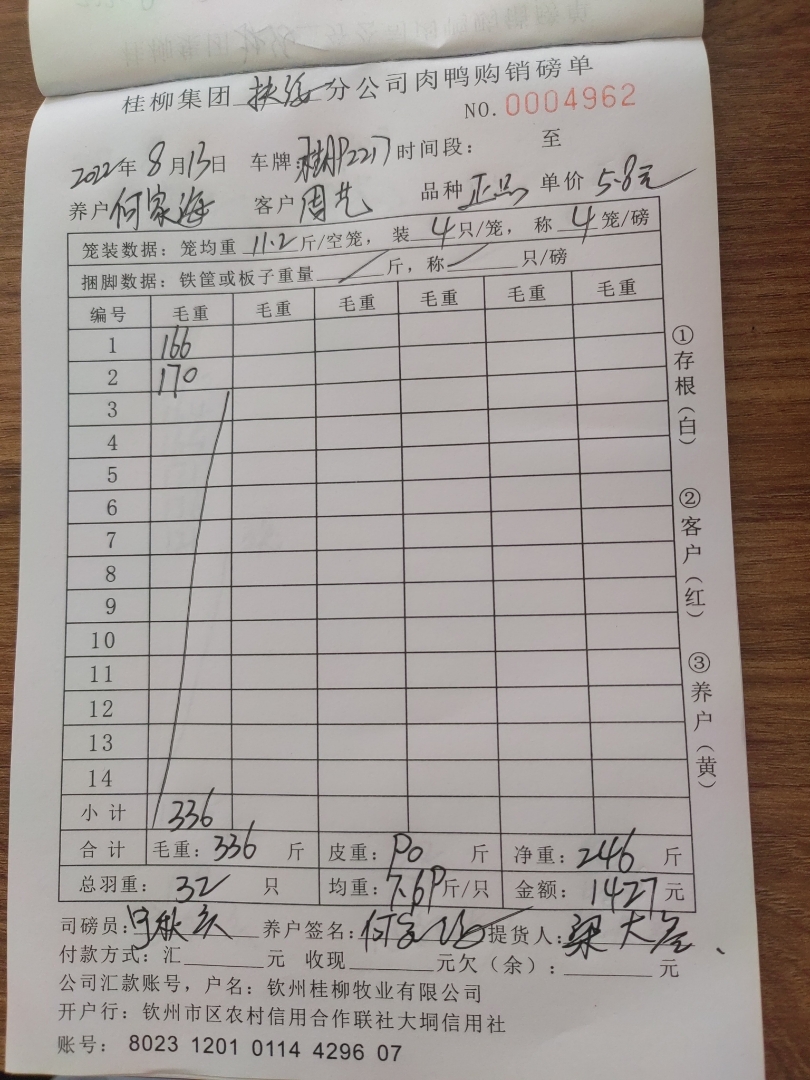 桂柳集团 扶绥 分公司肉鸭购销磅单
NO. 0004962
2022年 8月13日 车牌:桂AP2217 时间段: 至
养户 何家海 客户 周艺 品种 正品 单价 5.8元
笼装数据:笼均重 11.2 斤/空笼, 装 4 只/笼, 称 4 笼/磅
捆脚数据:铁筐或板子重量 斤,称 只/磅
编号 毛重 毛重 毛重 毛重 毛重 毛重
1 166
2 170
3
4
5
6
7
8
9
10
11
12
13
14
小计 336
合计 毛重:336 斤 皮重:90 斤 净重:246 斤
总羽重: 32 只 均重:7.69斤/只 金额: 1427元
司磅员: 养户签名:何家海 提货人:梁大
付款方式:汇 元 收现 元欠(余): 元
公司汇款账号,户名:钦州桂柳牧业有限公司
开户行:钦州市区农村信用合作联社大垌信用社
账号: 8023 1201 0114 4296 07
①存根(白)
②客户(红)
③养户(黄)